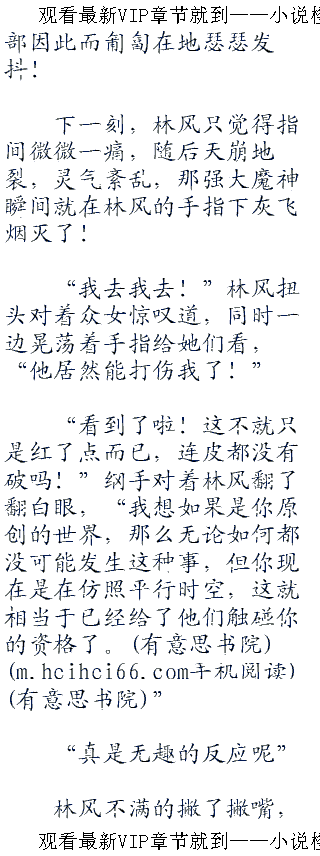 观看最新VIP章节就到——小说楼
部因此而匍匐在地瑟瑟发
抖！
下一刻，林风只觉得指
间微微一痛，随后天崩地
裂，灵气紊乱，那强大魔神
瞬间就在林风的手指下灰飞
烟灭了！
“我去我去！”林风扭
头对着众女惊叹道，同时一
边晃荡着手指给她们看，
“他居然能打伤我了！”
“看到了啦！这不就只
是红了点而已，连皮都没有
破吗！”纲手对着林风翻了
翻白眼，“我想如果是你原
创的世界，那么无论如何都
没可能发生这种事，但你现
在是在仿照平行时空，这就
相当于已经给了他们触碰你
的资格了。(有意思书院)
(m.hcihci66.com手机阅读)
(有意思书院)”
“真是无趣的反应呢”
林风不满的撇了撇嘴，
观看最新VIP章节就到——小说楼